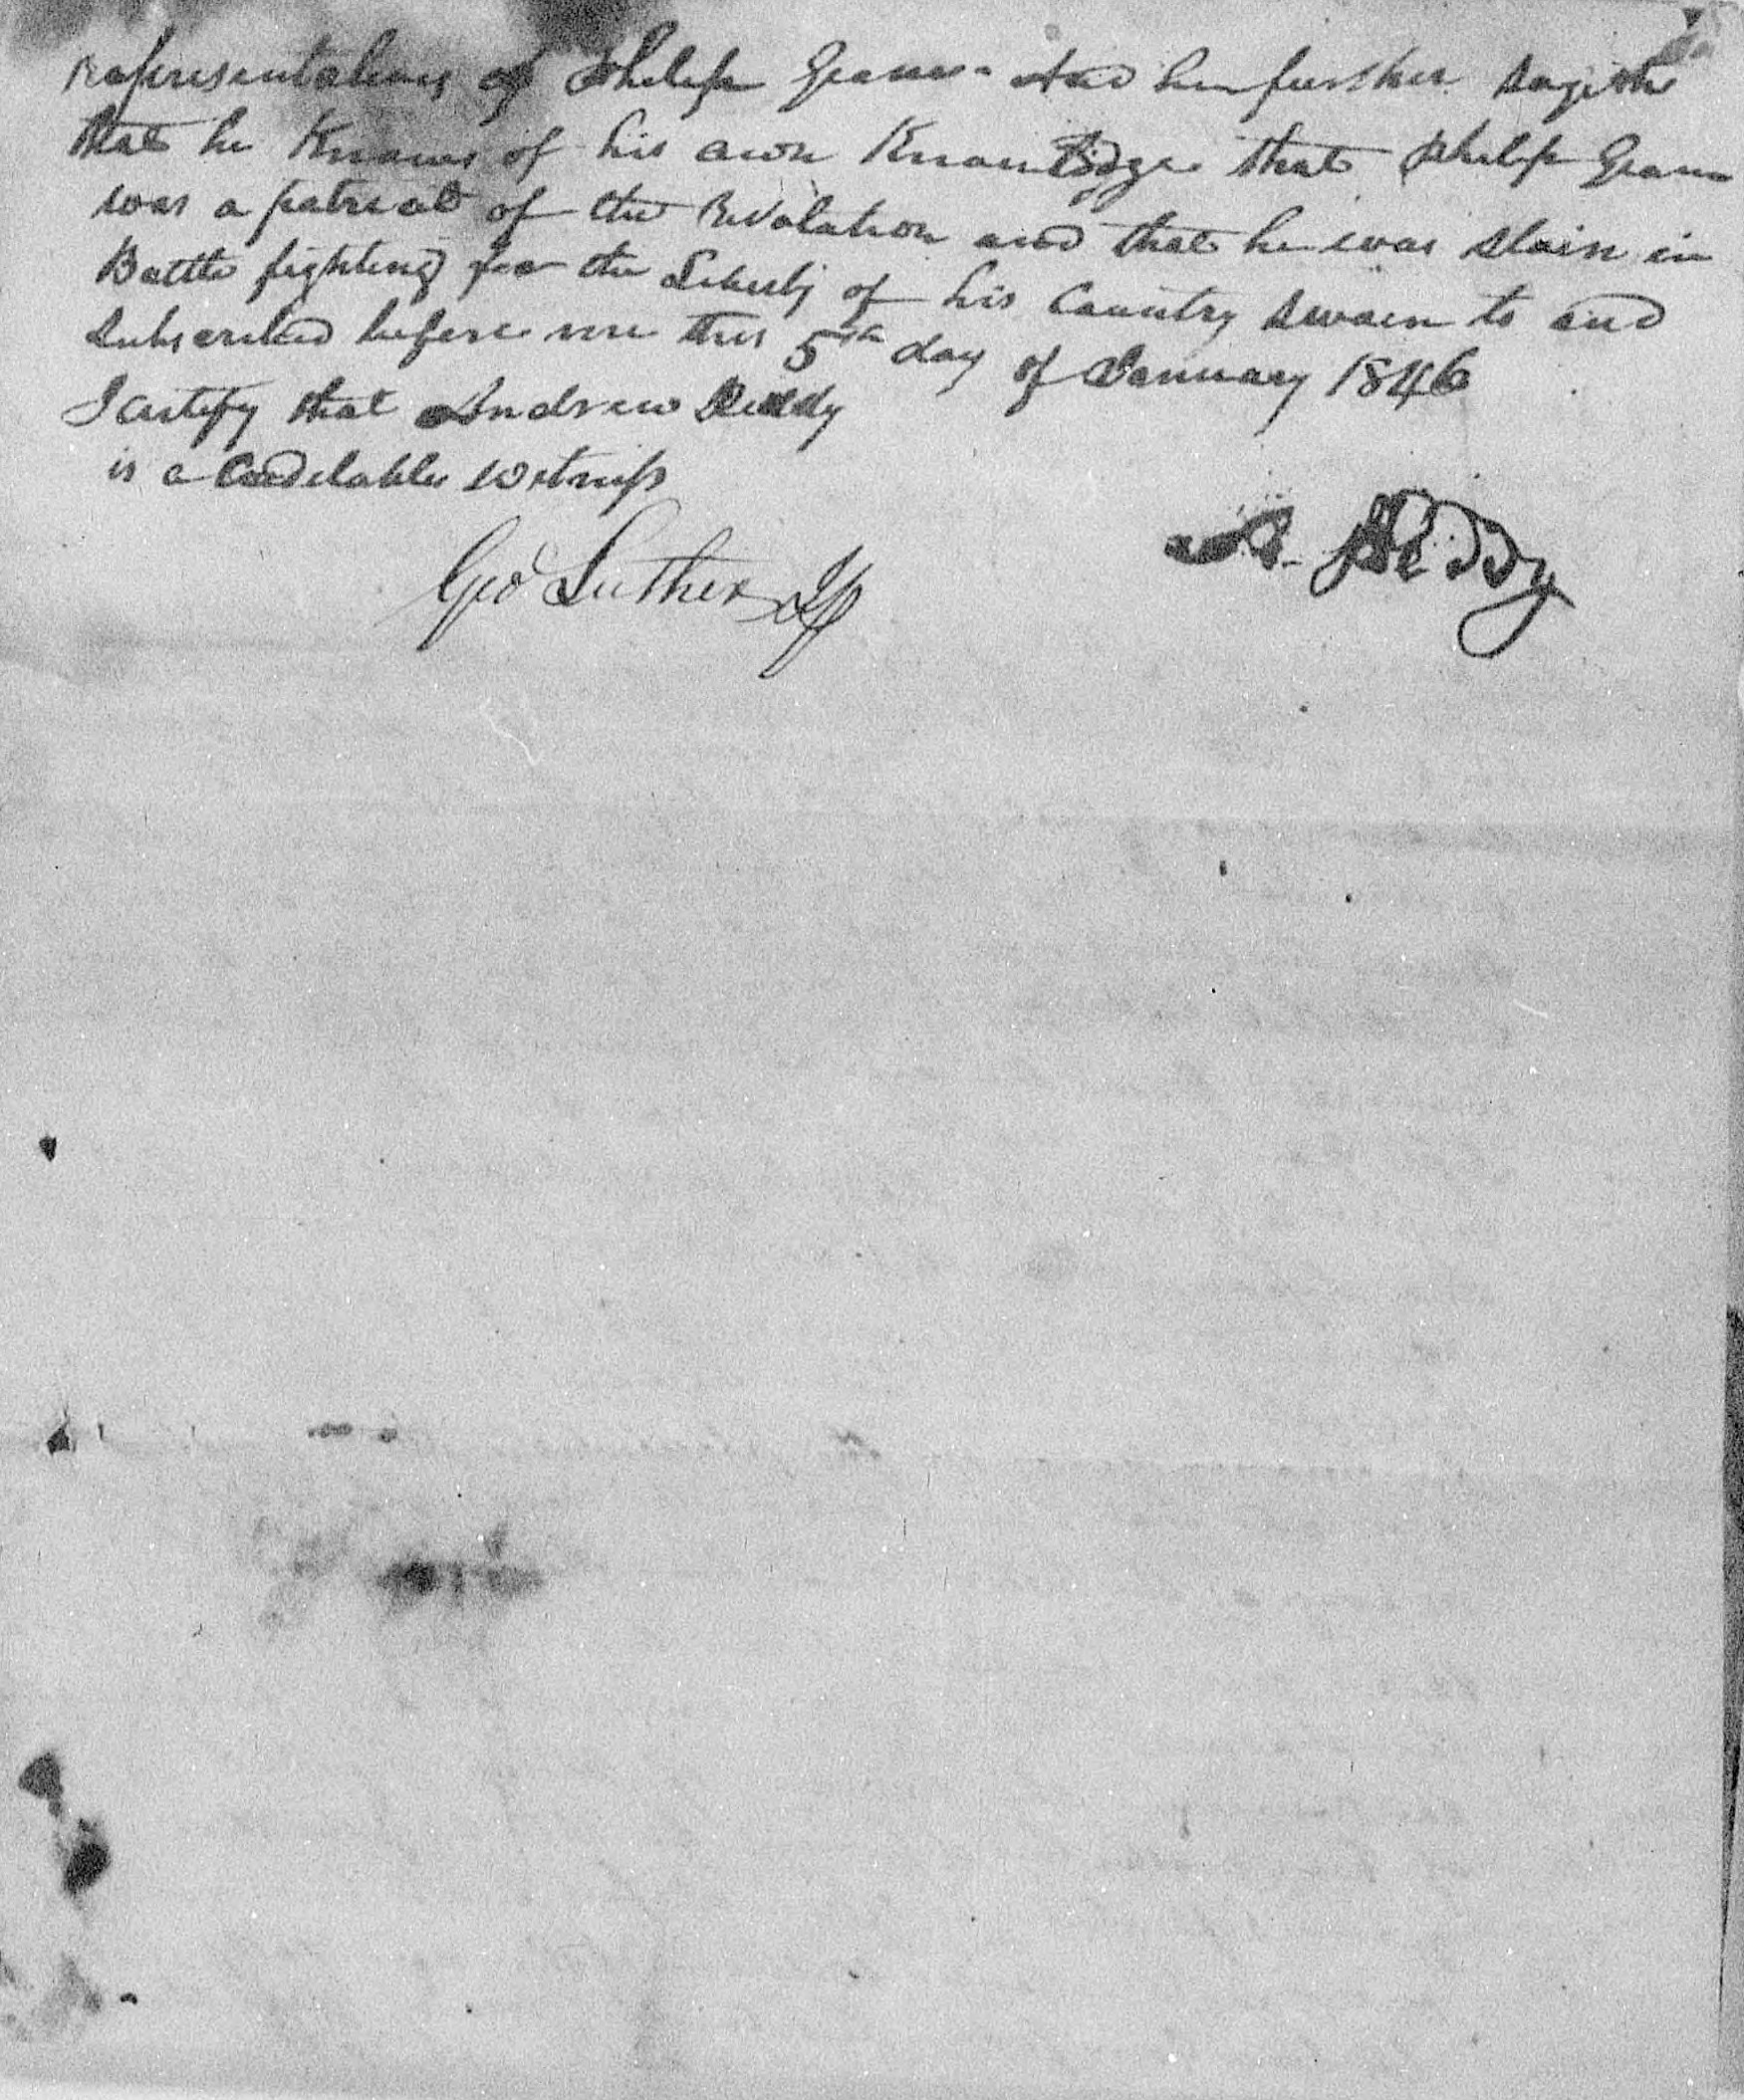 Representatives of Philip Graner - And he further sayeth
that he Knows of his own Knowledge that Philip
was a patriot of the Revolation and that he was slain in
Battle fighting for the Liberty of his Country Sworn to and
Subscribed before me this 5th day of January 1846
I certify that Andrew Reddy
is a Credelable witness
Geo Luther JP
A. Reddy